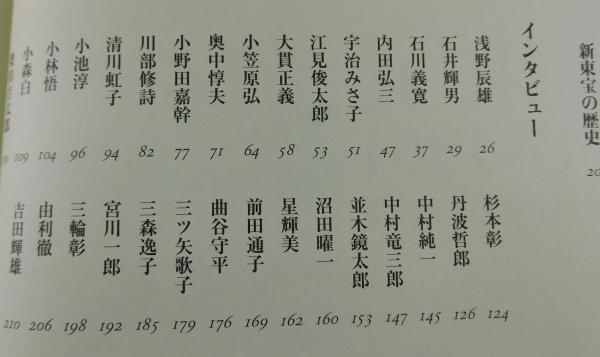 新東宝の歴史
インタビュー
浅野辰雄 26
石井輝男 29
石川義寛 37
内田弘三 47
宇治みさ子 51
江見俊太郎 53
大貫正義 58
小笠原弘 64
奥中惇夫 71
小野田嘉幹 77
川部修詩 82
清川虹子 94
小池淳 96
小林悟 104
小森白 109
杉本彰 124
丹波哲郎 126
中村純一 145
中村竜三郎 147
並木鏡太郎 153
沼田曜一 160
星輝美 162
前田通子 169
曲谷守平 176
三ツ矢歌子 179
三森逸子 185
宮川一郎 192
三輪彰 198
由利徹 206
吉田輝雄 210